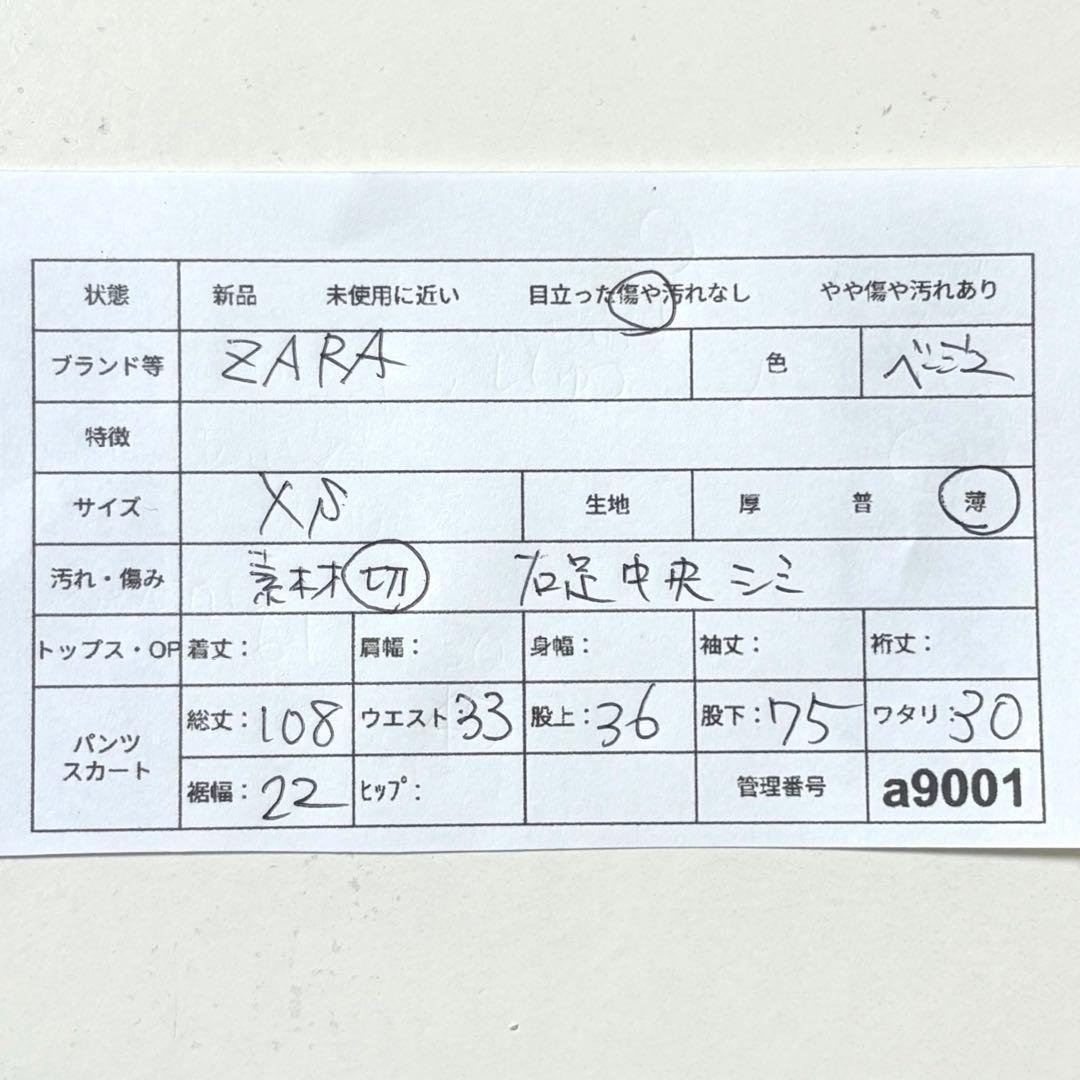 状態 新品 未使用に近い 目立った傷や汚れなし やや傷や汚れあり
ブランド等 ZARA 色 ベージュ
特徴
サイズ XS 生地 厚 普 薄
汚れ・傷み 素材切 右足中央シミ
トップス・OP 着丈: 肩幅: 身幅: 袖丈: 裄丈:
パンツ
スカート
総丈:108 ウエスト:33 股上:36 股下:75 ワタリ:30
裾幅:22 ヒップ: 管理番号 a9001